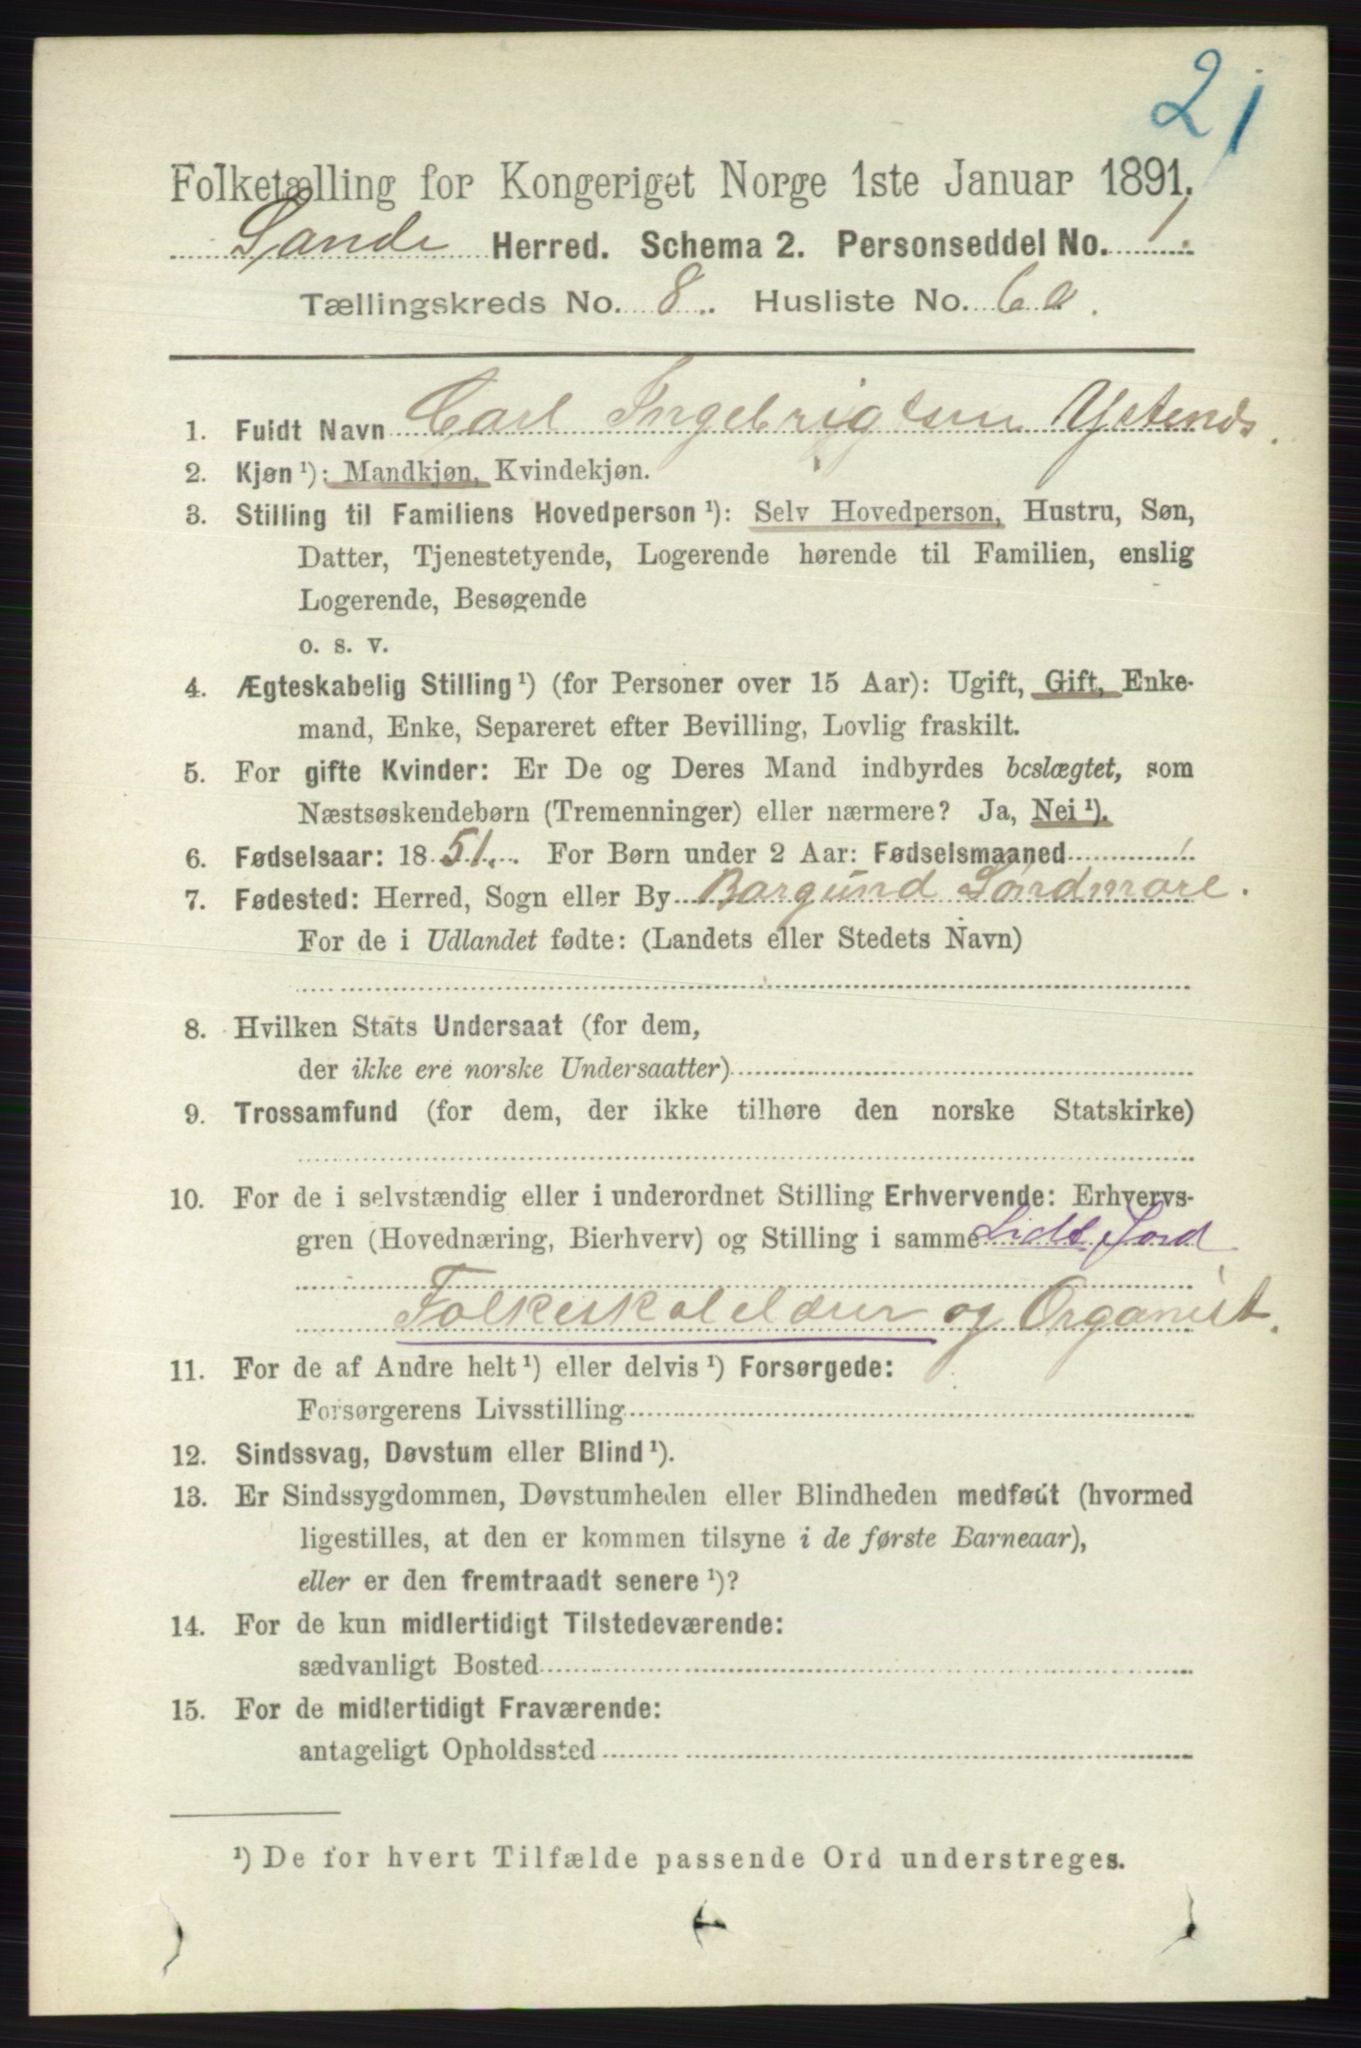 21
Folketælling for Kongeriget Norge 1ste Januar 1891.
Sande Herred. Schema 2. Personseddel No. 1.
Tællingskreds No. 8. Husliste No. 6a.
1. Fuldt Navn Carl Ingebrigtsen Ystenes.
2. Kjøn ¹): Mandkjøn, Kvindekjøn.
3. Stilling til Familiens Hovedperson ¹): Selv Hovedperson, Hustru, Søn,
Datter, Tjenestetyende, Logerende hørende til Familien, enslig
Logerende, Besøgende
o. s. v.
4. Ægteskabelig Stilling ¹) (for Personer over 15 Aar): Ugift, Gift, Enke-
mand, Enke, Separeret efter Bevilling, Lovlig fraskilt.
5. For gifte Kvinder: Er De og Deres Mand indbyrdes beslægtet, som
Næstsøskendebørn (Tremenninger) eller nærmere? Ja, Nei ¹).
6. Fødselsaar: 1851. For Børn under 2 Aar: Fødselsmaaned
7. Fødested: Herred, Sogn eller By Borgund Søndmøre.
For de i Udlandet fødte: (Landets eller Stedets Navn)
8. Hvilken Stats Undersaat (for dem,
der ikke ere norske Undersaatter)
9. Trossamfund (for dem, der ikke tilhøre den norske Statskirke)
10. For de i selvstændig eller i underordnet Stilling Erhvervende: Erhvervs-
gren (Hovednæring, Bierhverv) og Stilling i samme Lidt Jord
Folkeskolelærer og Organist.
11. For de af Andre helt ¹) eller delvis ¹) Forsørgede:
Forsørgerens Livsstilling
12. Sindssvag, Døvstum eller Blind ¹).
13. Er Sindssygdommen, Døvstumheden eller Blindheden medfødt (hvormed
ligestilles, at den er kommen tilsyne i de første Barneaar),
eller er den fremtraadt senere ¹)?
14. For de kun midlertidigt Tilstedeværende:
sædvanligt Bosted
15. For de midlertidigt Fraværende:
antageligt Opholdssted
¹) De for hvert Tilfælde passende Ord understreges.